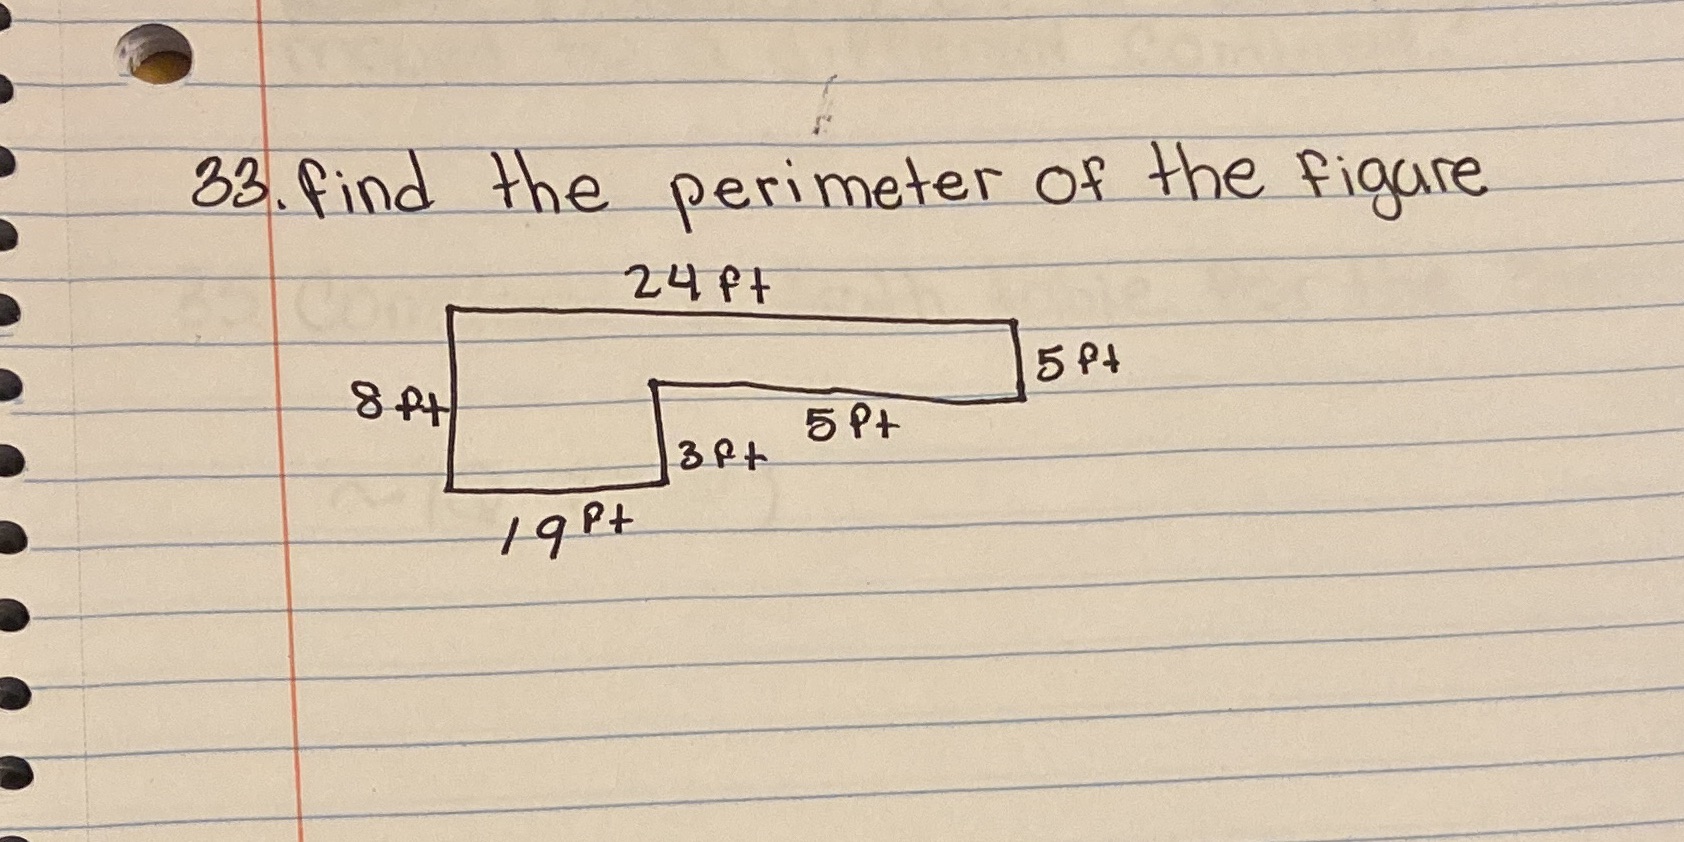 33. find the perimeter of the figure
24 ft
8 ft
5 ft
5 ft
3 ft
19 ft